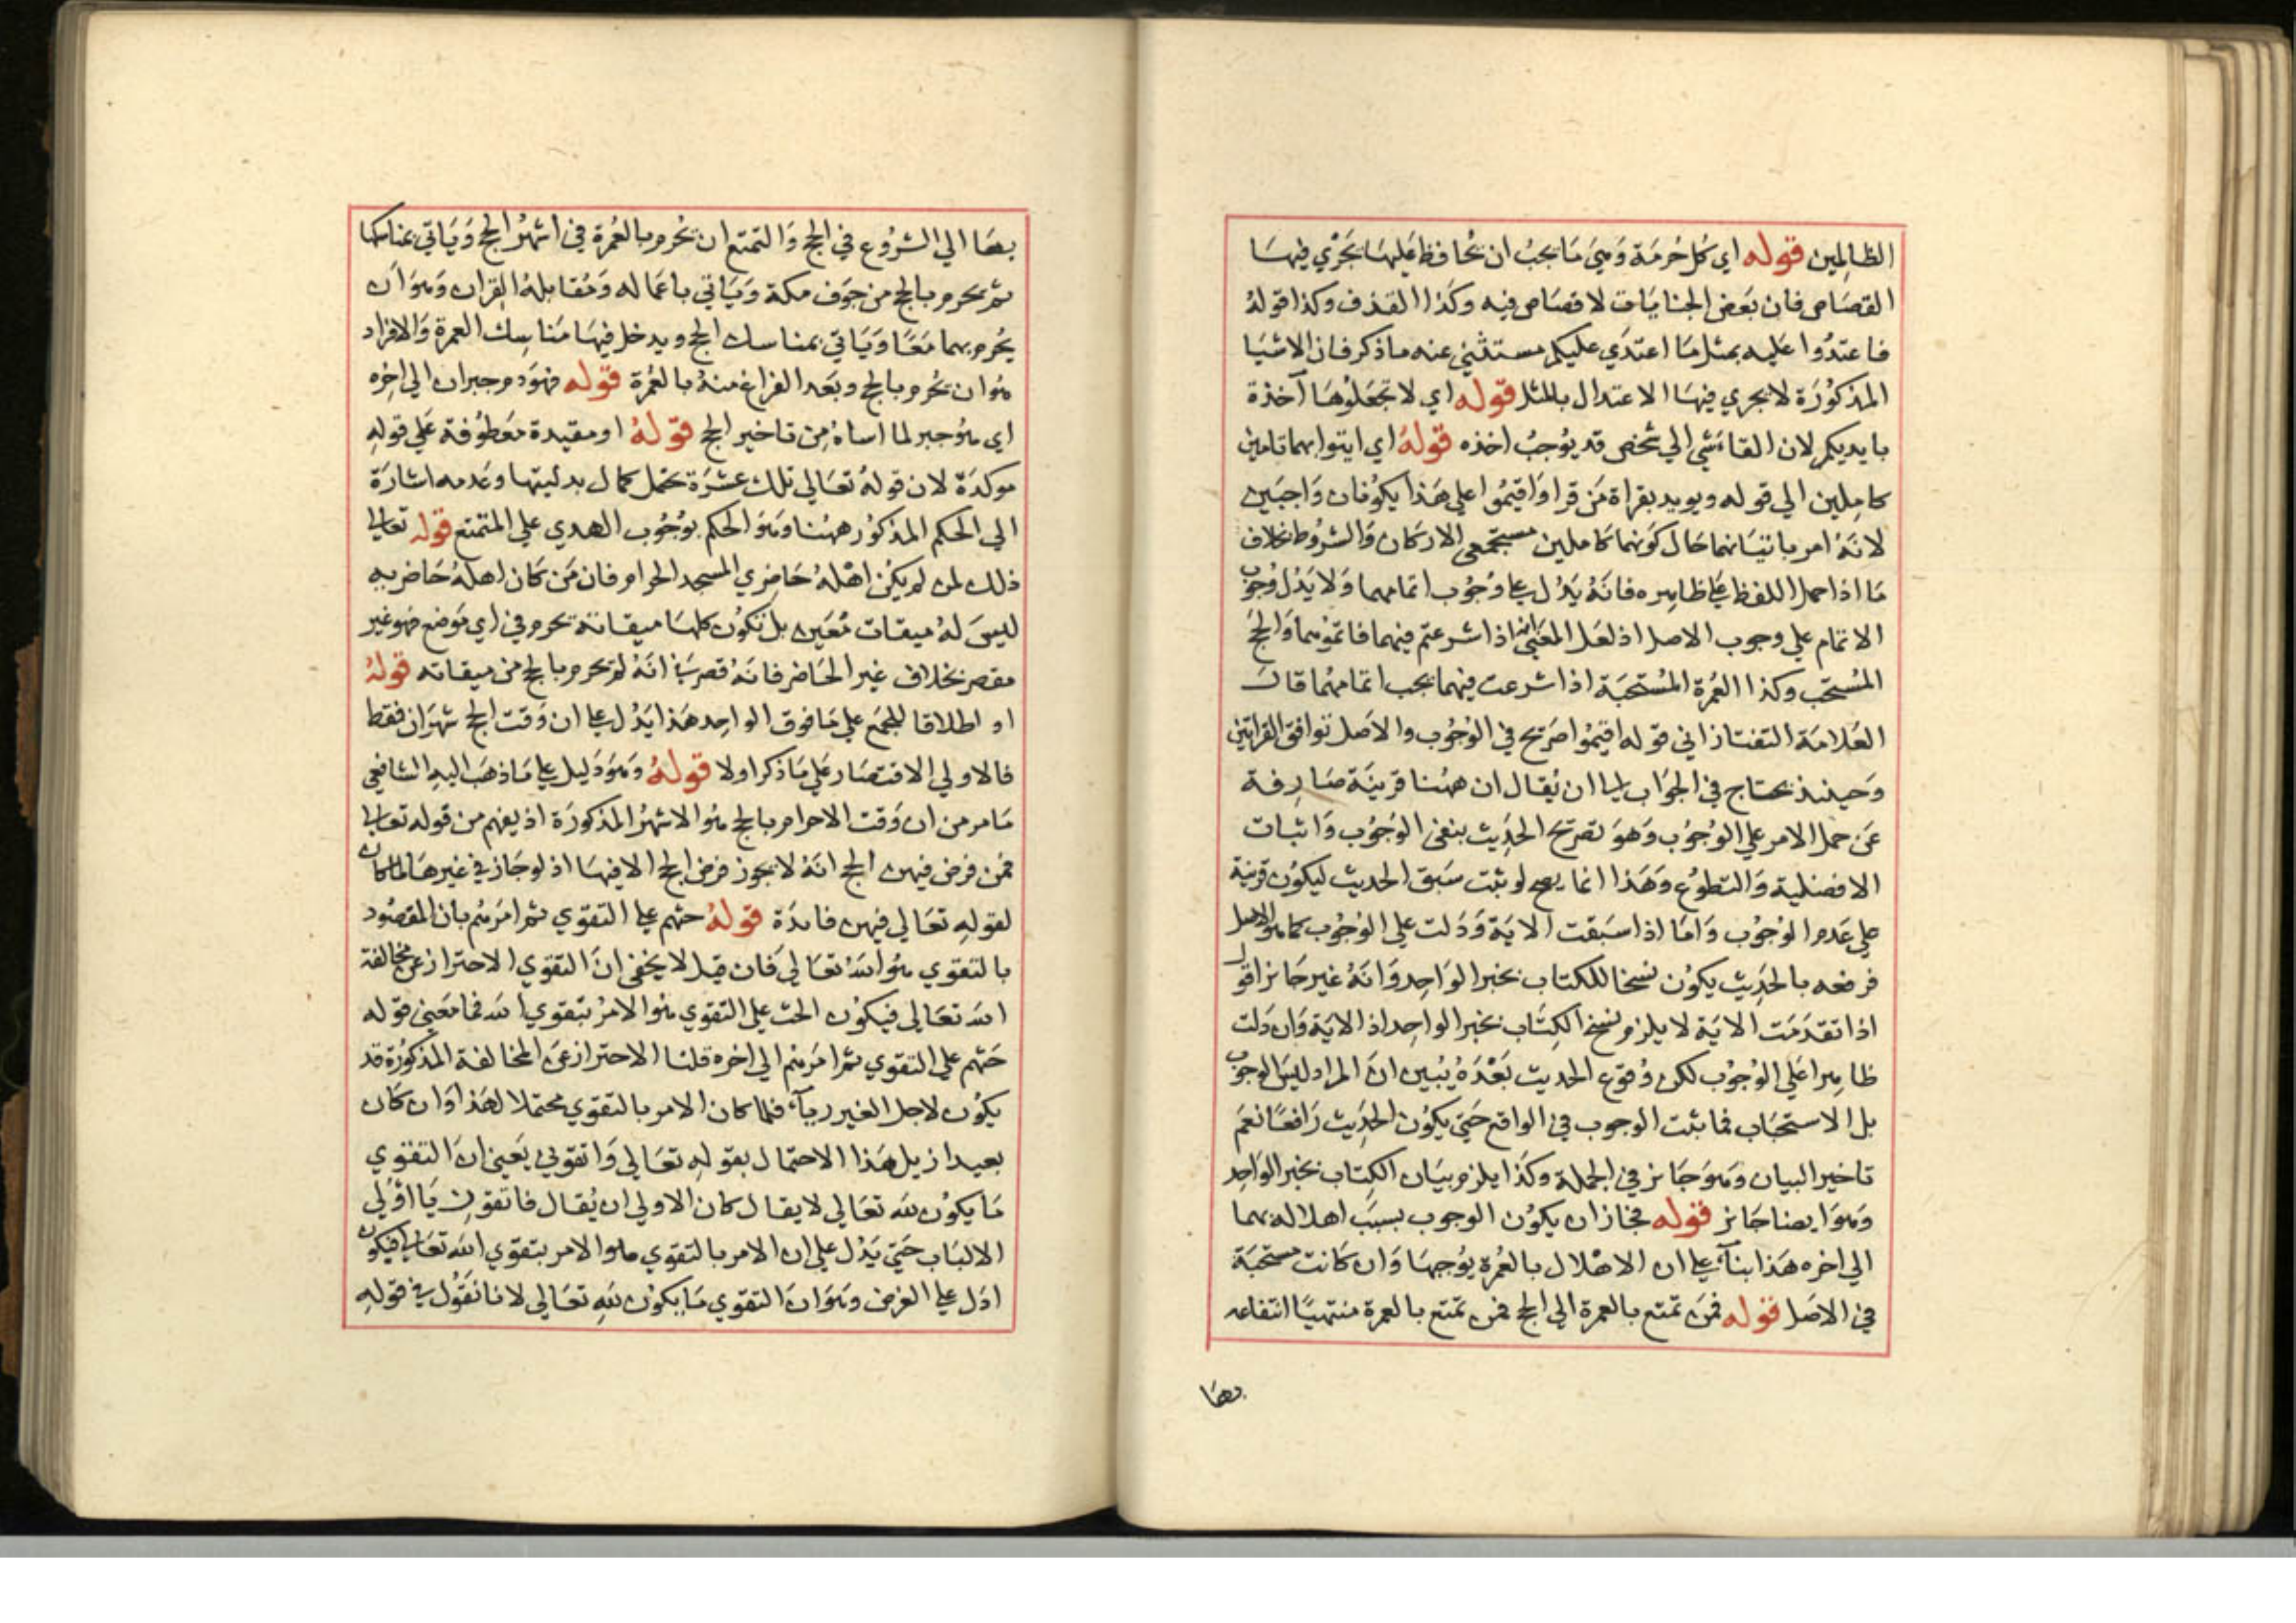 الظالمين قوله اي كل حرمة وهي ما يجب ان يحافظ عليها يجري فيها
القصاص فان بعض الجنايات لا قصاص فيه وكذا القذف وكذا قوله
فاعتدوا عليه بمثل ما اعتدي عليكم مستثني عنه ما ذكر فان الاشيا
المذكورة لا يجري فيها الاعتدال بالمثل قوله اي لا تجعلوها آخذة
بايديكم لان القا شي الي شخص قد يوجب اخذه قوله اي ايتوا بهما تامين
كاملين الي قوله ويويد بقراة من قرا واقيموا علي هذا يكونان واجبين
لانه امر باتيانهما حال كونهما كاملين مستجمعي الاركان والشروط بخلاف
ما اذا حمل اللفظ علي ظاهره فانه يدل علي وجوب اتمامهما ولا يدل وجوب
الاتمام علي وجوب الاصل اذ لعل المعني انه اذا شرعتم فيهما فاتموهما والحج
المستحب وكذا العمرة المستحبة اذا شرعت فيهما يجب اتمامهما قال
العلامة التفتازاني قوله اقيموا صريح في الوجوب والاصل توافق القراتين
وحينئذ يحتاج في الجواب الي ان يقال ان ههنا قرينة صارفة
عن حمل الامر علي الوجوب وهو تصريح الحديث بنفي الوجوب واثبات
الافضلية والتطوع وهذا انما يصح لو ثبت سبق الحديث ليكون قرينة
علي عدم الوجوب واما اذا سبقت الاية ودلت علي الوجوب كما هو الاصل
فرفعه بالحديث يكون نسخا للكتاب بخبر الواحد وانه غير جائز اقول
اذا تقدمت الاية لا يلزم نسخ الكتاب بخبر الواحد اذ الاية وان دلت
ظاهرا علي الوجوب لكن وقوع الحديث بعده يبين ان المراد ليس الوجوب
بل الاستحباب فما ثبت الوجوب في الواقع حتي يكون الحديث رافعا نعم
تاخير البيان وهو جائز في الجملة وكذا يلزم بيان الكتاب بخبر الواحد
وهو ايضا جائز قوله فجاز ان يكون الوجوب بسبب اهلاله بهما
الي اخره هذا بناء علي ان الاهلال بالعمرة يوجبها وان كانت مستحبة
في الاصل قوله فمن تمتع بالعمرة الي الحج فمن تمتع بالعمرة منتهيا انتفاعه
بها
بها الي الشروع في الحج والتمتع ان يحرم بالعمرة في اشهر الحج وياتي بمناسكها
ثم يحرم بالحج من جوف مكة وياتي باعماله ومقابله القران وهو ان
يحرم بهما معا وياتي بمناسك الحج ويدخل فيها مناسك العمرة والافراد
هو ان يحرم بالحج وبعد الفراغ منه بالعمرة قوله فهو دم جبران الي اخره
اي هو جبر لما اساه من تاخير الحج قوله او مقيدة معطوفة علي قوله
موكدة لان قوله تعالي تلك عشرة يحتمل كمال بدليتها وعدمه اشارة
الي الحكم المذكور ههنا وهو الحكم بوجوب الهدي علي المتمتع قوله تعالي
ذلك لمن لم يكن اهله حاضري المسجد الحرام فان من كان اهله حاضريه
ليس له ميقات معين بل تكون كلها ميقاته يحرم في اي موضع فهو غير
مقصر بخلاف غير الحاضر فانه قصر في انه لم يحرم بالحج من ميقاته قوله
او اطلاقا للجمع علي ما فوق الواحد هذا يدل علي ان وقت الحج شهران فقط
فالاولي الاقتصار علي ما ذكر اولا قوله وهو دليل علي ما ذهب اليه الشافعي
ما مر من ان وقت الاحرام بالحج هو الاشهر المذكورة اذ يفهم من قوله تعالي
فمن فرض فيهن الحج انه لا يجوز فرض الحج الا فيها اذ لو جاز في غيرها لما كان
لقوله تعالي فيهن فايدة قوله حثهم علي التقوي ثم امرهم بان المقصود
بالتقوي هو الله تعالي فان قيل لا يخفي ان التقوي الاحتراز عن مخالفة
الله تعالي فيكون الحث علي التقوي هو الامر بتقوي الله فما معني قوله
حثهم علي التقوي ثم امرهم الي اخره قلنا الاحتراز عن المخالفة المذكورة قد
يكون لاجل الغير رياء فلما كان الامر بالتقوي محتملا لهذا وان كان
بعيدا زيل هذا الاحتمال بقوله تعالي واتقوني يعني ان التقوي
ما يكون لله تعالي لا يقال كان الاولي ان يقال فاتقون يا اولي
الالباب حتي يدل علي ان الامر بالتقوي هو الامر بتقوي الله تعالي فيكون
ادل علي الغرض وهو ان التقوي ما يكون لله تعالي لانا نقول في قوله